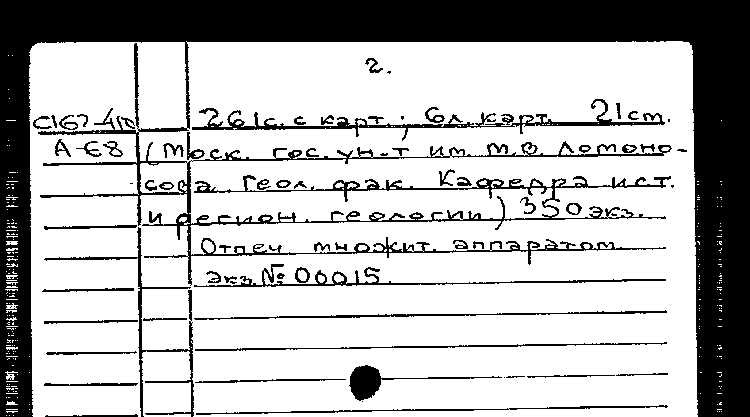 2.
С167-410 261с. с карт.; 6л. карт. 21см.
А-68 (Моск. гос. ун-т им. М.В. Ломоно-
сова. Геол. фак. Кафедра ист.
и регион. геологии) 350 экз.
Отпеч. множит. аппаратом.
экз. № 00015.